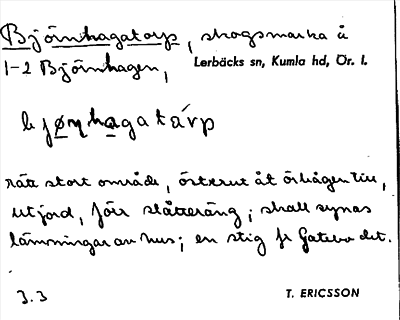 Björnhagatorp, skogsmarka å
1-2 Björnhagen, Lerbäcks sn, Kumla hd, Ör. l.
bjø̱ɳha̱gatárp
rätt stort område, österut åt
utjord, förr slåtteräng; skall synas
lämningar av hus; en stig fr Gatebo dit.
3.3 T. ERICSSON